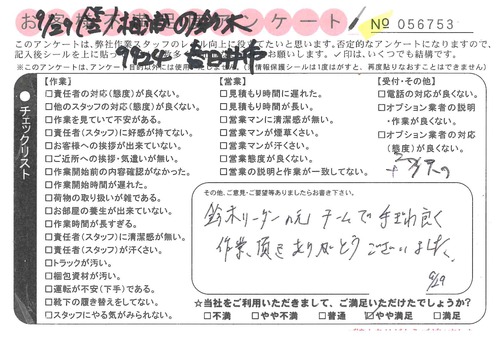 お客様 アンケート
9/29(金)
№ 056753
このアンケートは、弊社作業スタッフのレベル向上に役立てたいと思います。否定的なアンケートになりますので、
※このアンケートは、
【作業】
□責任者の対応(態度)が良くない。
□他のスタッフの対応(態度)が良くない。
□作業を見ていて不安がある。
□責任者(スタッフ)に好感が持てない。
□お客様への挨拶が出来ていない。
□ご近所への挨拶・気遣いが無い。
□作業開始前の内容確認がなかった。
□作業開始時間が遅れた。
□荷物の取り扱いが雑である。
□お部屋の養生が出来ていない。
□作業時間が長すぎる。
□責任者(スタッフ)に清潔感が無い。
□責任者(スタッフ)が汗くさい。
□トラックが汚い。
□梱包資材が汚い。
□運転が不安(下手)である。
□靴下の履き替えをしてない。
□スタッフにやる気がみられない。
チェックリスト
【営業】
□見積もり時間に遅れた。
□見積もり時間が長い。
□営業マンに清潔感が無い。
□営業マンが煙草くさい。
□営業マンが汗くさい。
□営業態度が良くない。
□営業の説明と作業が一致してない。
【受付・その他】
□電話の対応が良くない。
□オプション業者の説明
・作業が良くない。
□オプション業者の対応
(態度)が良くない。
その他、ご意見・ご要望等ありましたらお書き下さい。
鈴木リーダーの元 チームで手ぎわ良く
作業頂きありがとうございました。
9/29
☆当社をご利用いただきまして、ご満足いただけたでしょうか?
□不満 □やや不満 □普通 □やや満足 □満足